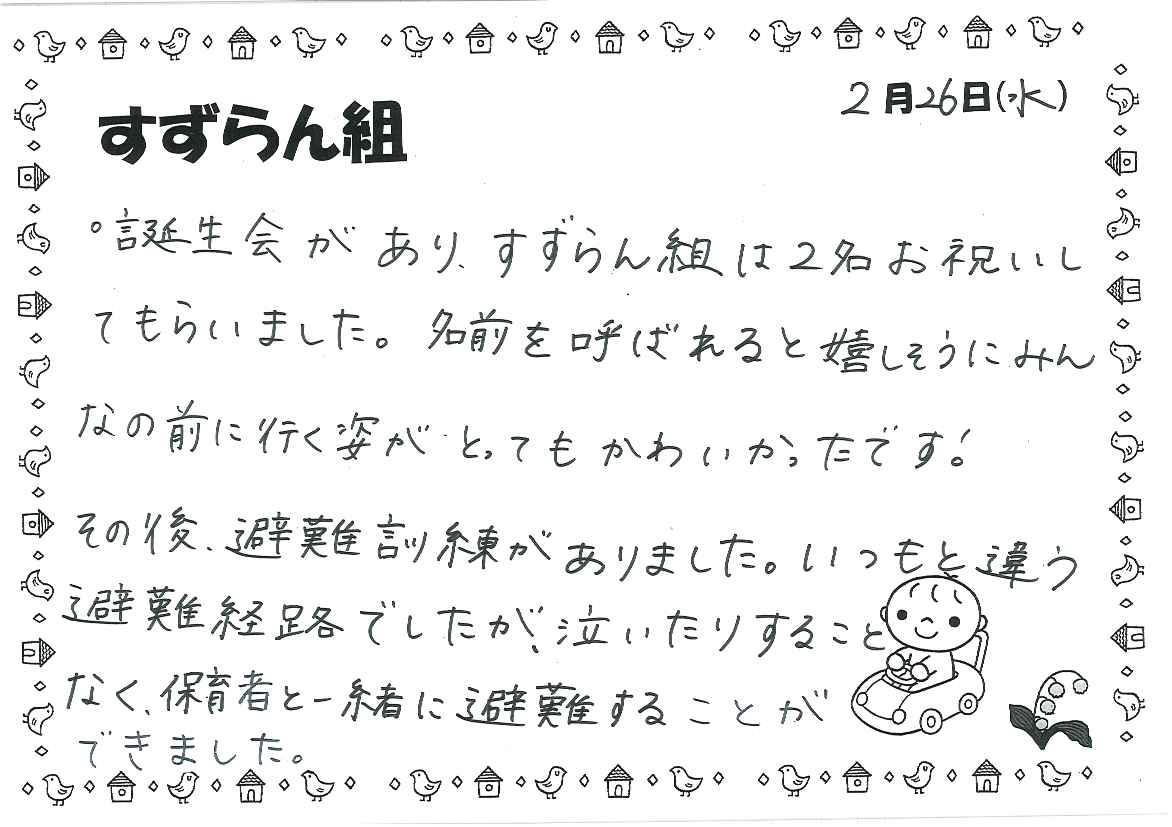 2月26日(水)
すずらん組
°誕生会があり、すずらん組は2名お祝いし
てもらいました。名前を呼ばれると嬉しそうにみん
なの前に行く姿がとってもかわいかったです!
その後、避難訓練がありました。いつもと違う
避難経路でしたが、泣いたりすること
なく、保育者と一緒に避難することが
できました。